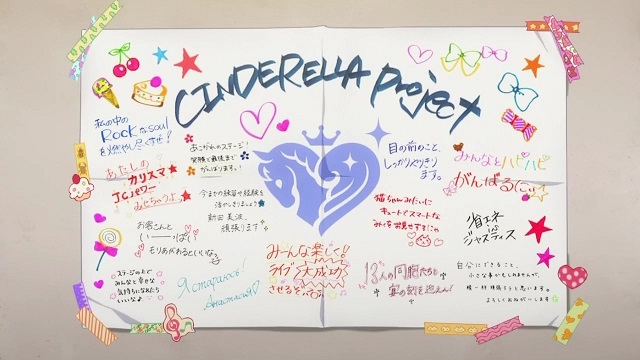 CINDERELLA Project
私の中の
Rockなsoul
を燃やし尽くすぜ!
あこがれのステージ!
笑顔で最後まで
がんばります。!
目の前のこと、
しっかりやりきり
ます。
みんなとハピハピ
がんばるにぃ
あたしの
カリスマ
JCパワー
みせちゃうよ
今までの練習や経験を
活かしましょう
新田美波、
頑張ります
猫ちゃんみたいに
キュートでスマートな
省エネ
is
ジャスティス
お客さんと
いーーっぱい
もりあがれるといいな
ステージの上で
みんなと幸せな
気持ちになれたら
いいなぁ
Я стараюсь!
Анастасия
みんな楽しく!!
ライブ大成功
させるぞ
13人の同胞たちと
宴の刻を迎えん!
自分にできること、
小さな事かもしれませんが、
精一杯頑張ろうと思います。
よろしくおねがいします